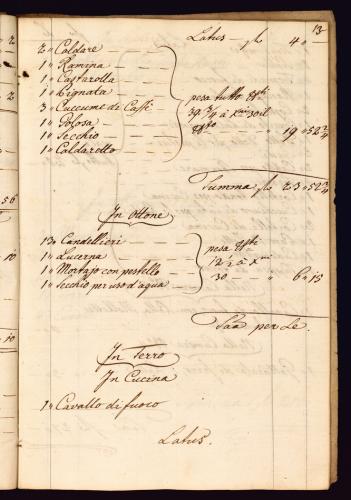 13
Latus fl 4 "
2 " Caldare
1 " Ramina
1 " Castarolla
1 " Pignata
3 " Cuccume da Caffè
1 "
1 " Secchio
1 " Caldaretto
pesa tutto
39 3/4 à
19 " 52 3/4
Summa fl 23 " 52 3/4
In Ottone
13 " Candellieri
1 " Lucerna
1 " Mortajo con pestello
1 " Secchio per uso d'aqua
pesa
12 1/2 à
30 " 6 " 15
per Se.
In Ferro
In Cucina
1 " Cavallo di fuoco
Latus.
2
2
56
10
10